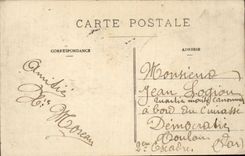 CARTE POSTALE
CORRESPONDANCE
ADRESSE
Amitié
Monsieur
Jean
quartier maître canonnier
à bord du Cuirassé
Démocratie
Toulon
2e Escadre
Var